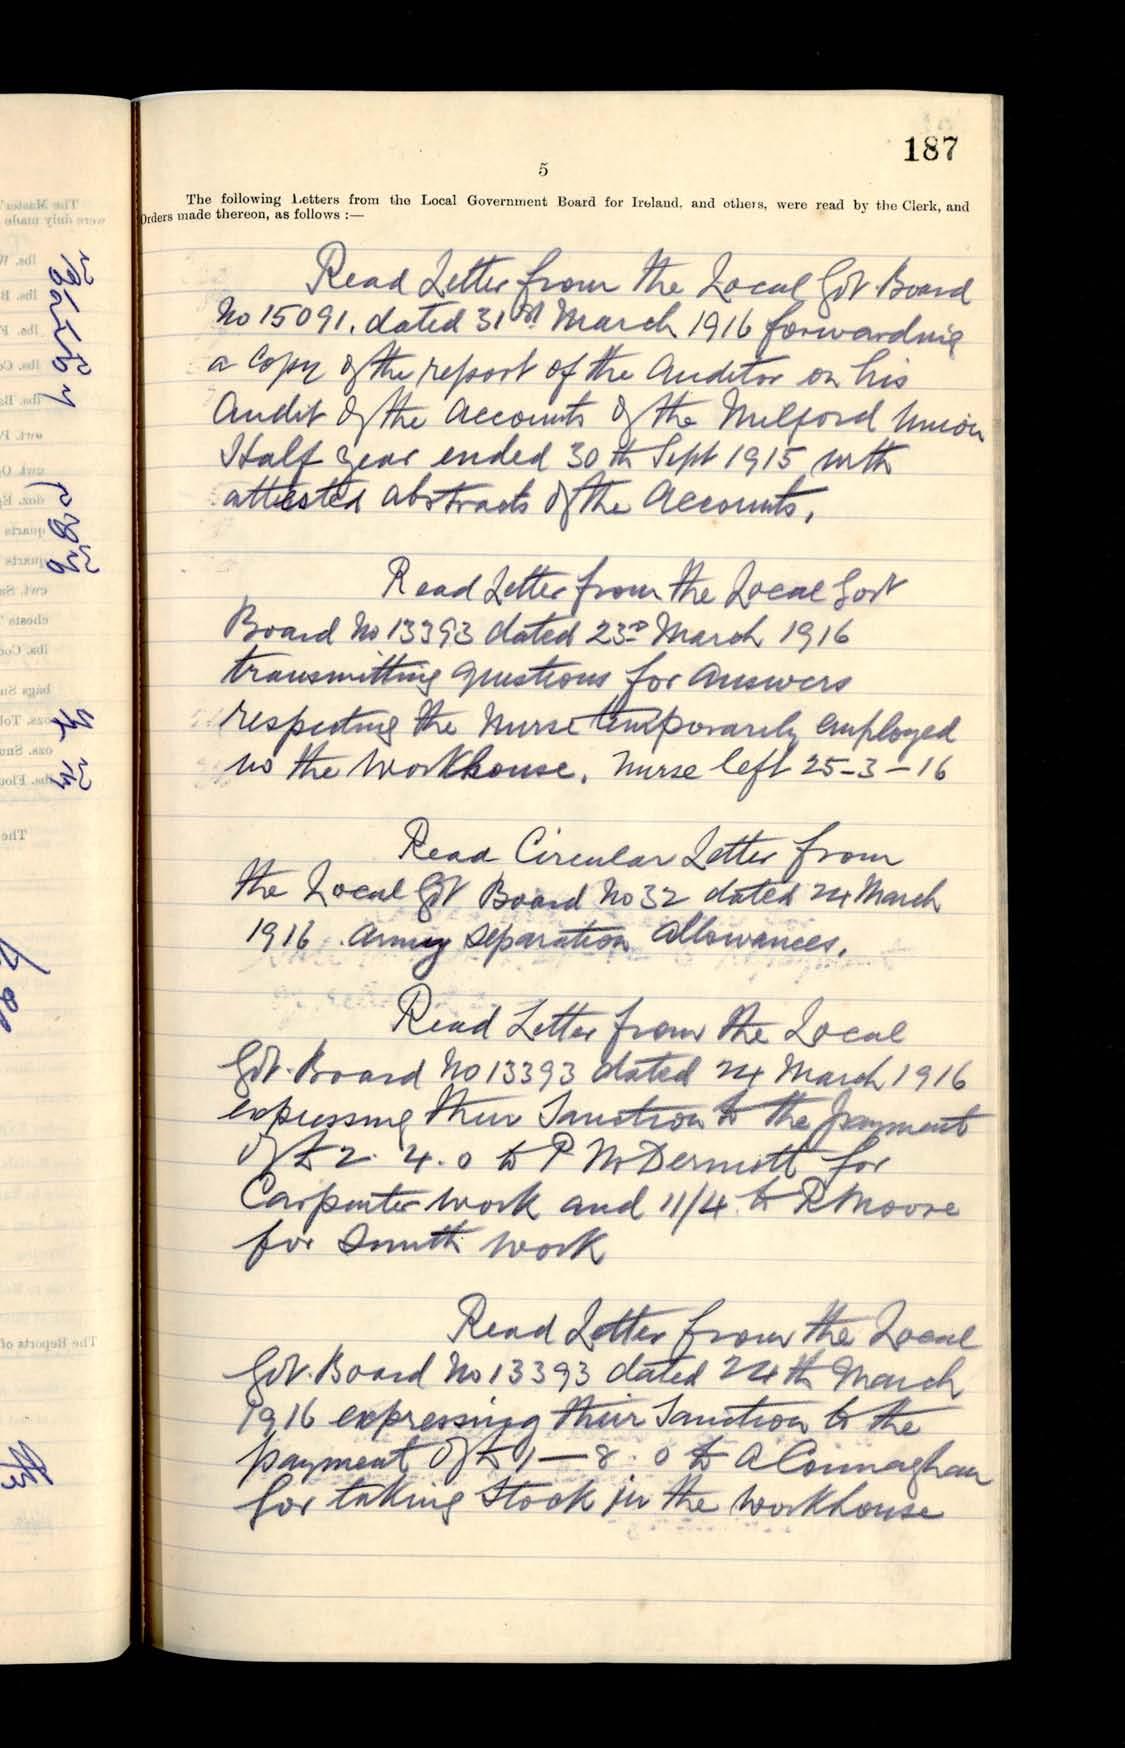 187
5
The following Letters from the Local Government Board for Ireland, and others, were read by the Clerk, and
Orders made thereon, as follows :—
Read Letter from the Local Gvt. Board
No 15091. dated 31st March 1916 forwarding
a copy of the report of the Auditor on his
Audit of the Accounts of the Milford Union
Half year ended 30th Sept 1915 with
attested abstracts of the Accounts.
Read Letter from the Local Govt
Board No 13393 dated 23rd March 1916
transmitting questions for answers
respecting the Nurse temporarily employed
in the Workhouse. Nurse left 25-3-16
Read Circular Letter from
the Local Gvt Board No 32 dated 24 March
1916 . Army separation allowances.
Read Letter from the Local
Gvt. Board No 13393 dated 24 March 1916
expressing their Sanction to the payment
of £2. 4. 0 to P McDermott for
Carpenter work and 11/4 to R Moore
for Smith work
Read Letter from the Local
Gvt. Board No 13393 dated 24th March
1916 expressing their Sanction to the
payment of £1—8. 0 to A Connaghan
for taking Stock in the Workhouse